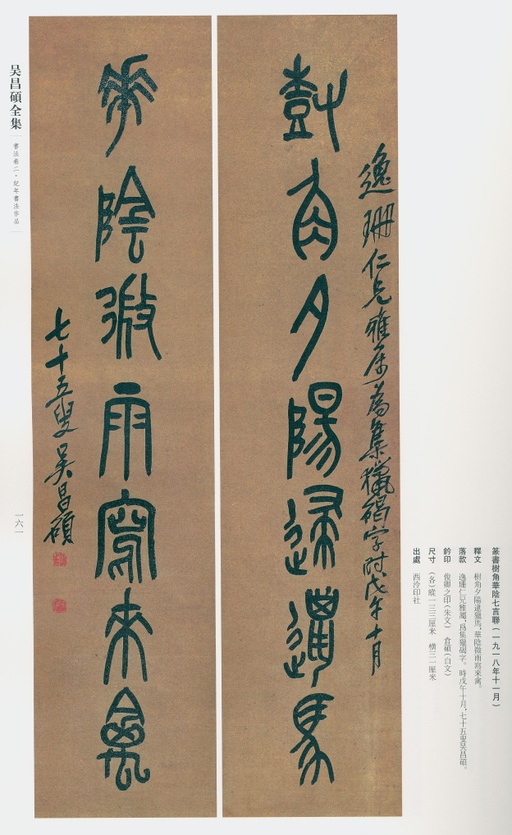 篆書樹角華陰七言聯(一九一八年十一月)
釋文 樹角夕陽獵馬,華陰微雨寫來禽。
落款 逸珊仁兄雅屬,爲集獵碣字。時戊午十月,七十五叟吳昌碩。
鈐印 俊卿之印(朱文) 倉碩(白文)
尺寸 (各)縱一三三厘米 橫三一厘米
出處 西泠印社
逸珊仁兄雅屬為集獵碣字時戊午十月
樹角夕陽馬
華陰微雨寫來禽
七十五叟吳昌碩
吴昌碩全集
書法卷二·紀年書法作品
一六一